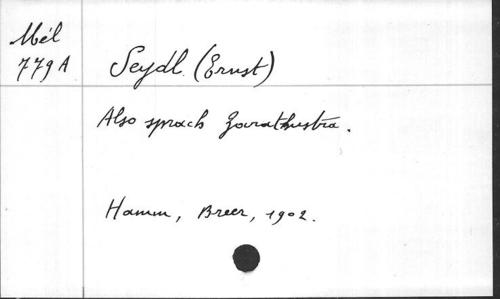 Mél
779 A
Seydl. (Ernst)
Also sprach Zarathustra.
Hamm, Breer, 1902.